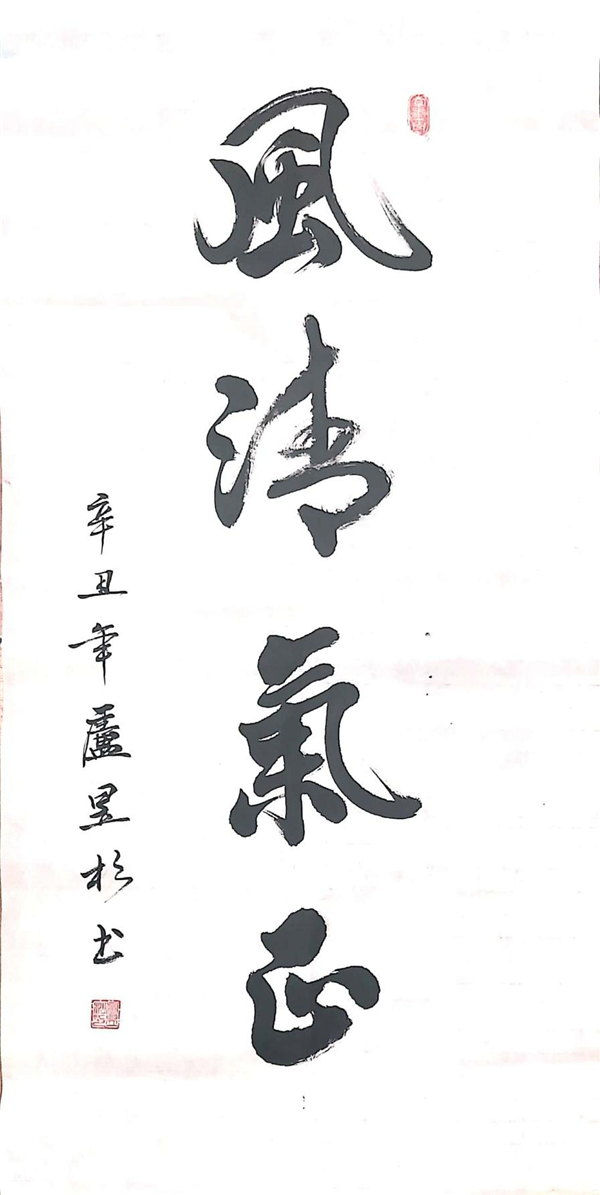 風清氣正
辛丑年盧昱杉书